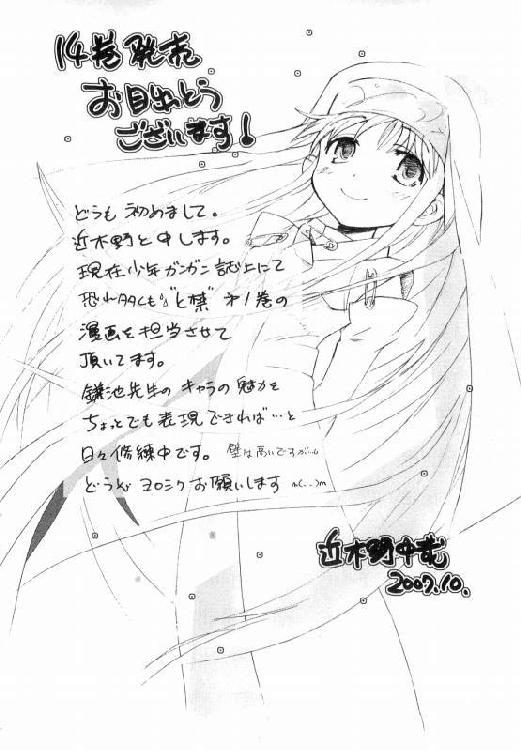 14巻発売
お目出とう
ございます!
どうも 初めまして。
近木野と申します。
現在少年ガンガン 誌上にて
恐れタタくも "と禁" 第1巻の
漫画を担当させて
頂いてます。
鎌池先生の キャラの 魅力を
ちょっとでも 表現 できれば…と
日々修練中です。 壁は高いですが…
どうぞ ヨロシク お願いします m(..)m
近木野中哉
2007.10.